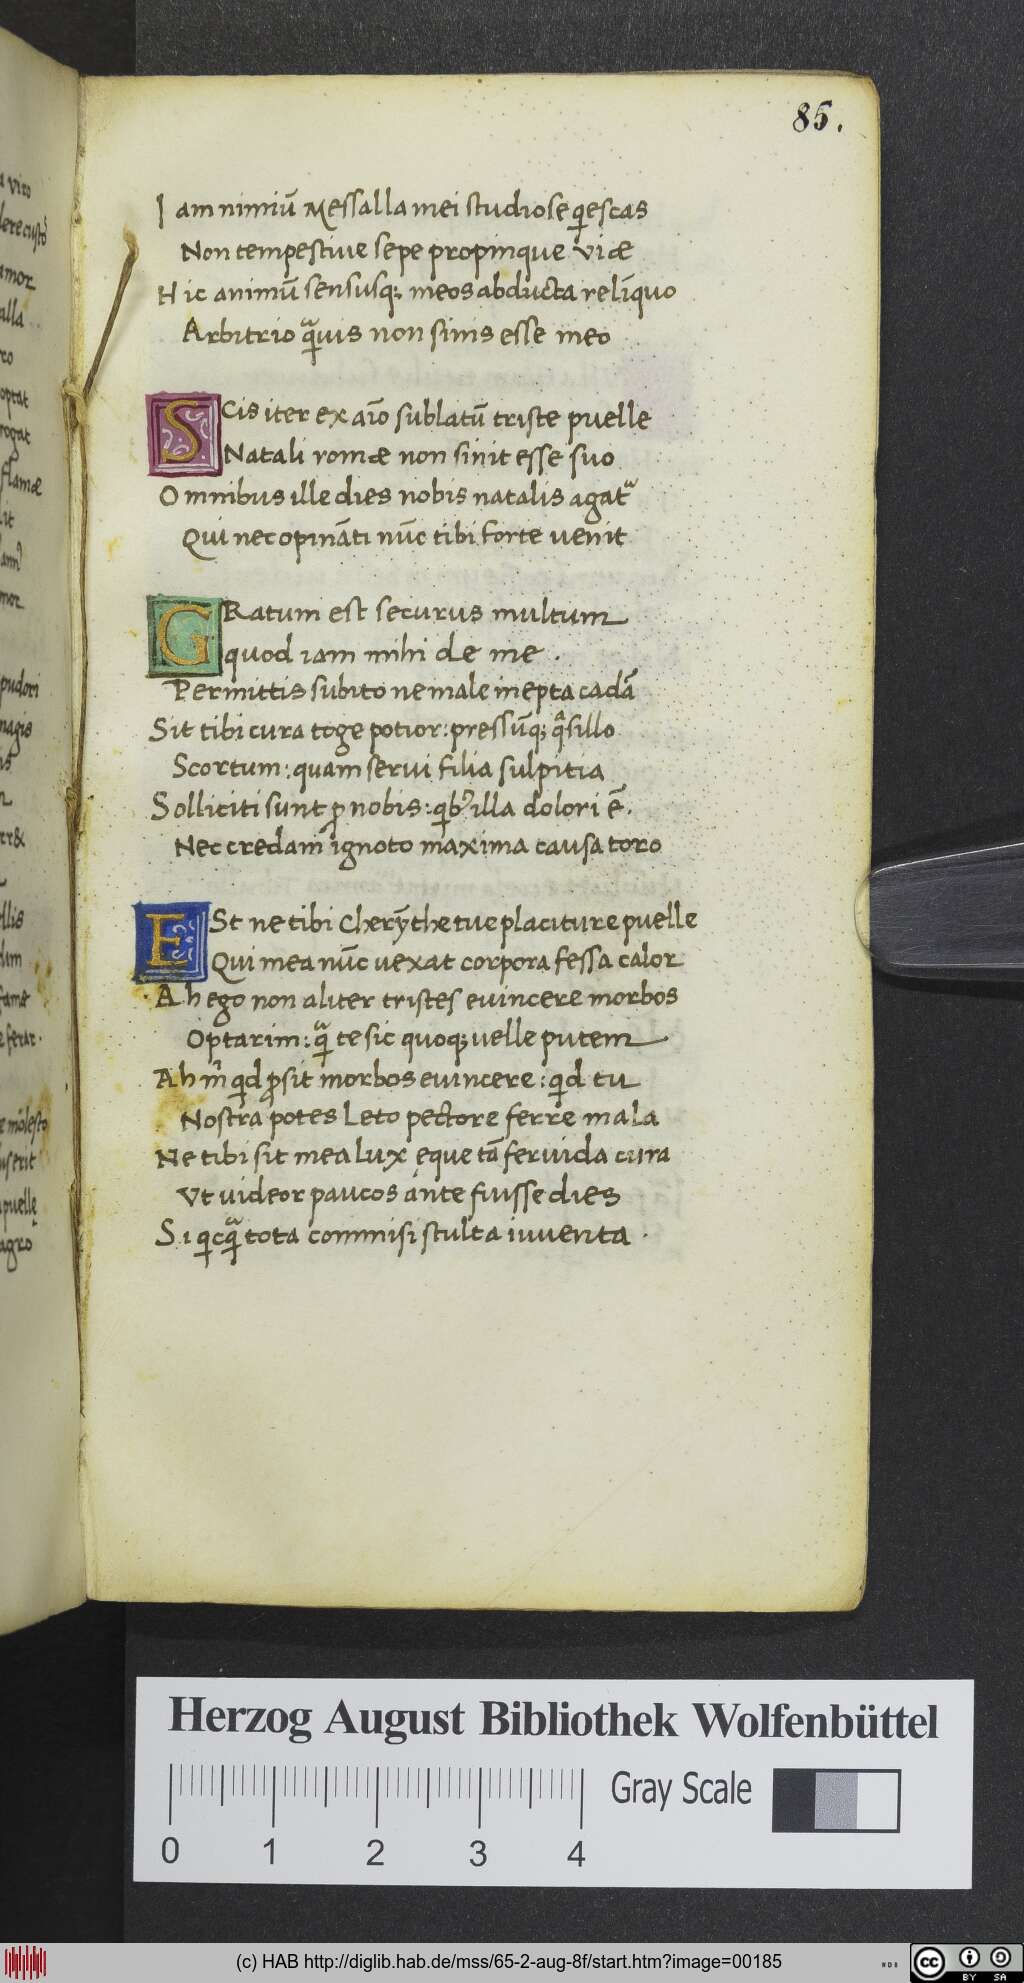 85.
Iam nimiū Messalla mei studiose qͥescas
Non tempestiue sepe propinque viæ
Hic animū sensusqꝫ meos abducta relīquo
Arbitrio qͣuis non sinis esse meo
SCis iter ex aīo sublatū triste puelle
Natali romæ non sinit esse suo
Omnibus ille dies nobis natalis agatᷣ
Qui nec opināti nūc tibi forte uenit
GRatum est securus multum
quod iam mihi de me .
Permittis subito ne male inepta cadā
Sit tibi cura toge potior: pressūqꝫ qͣsillo
Scortum: quam serui filia sulpitia
Solliciti sunt ꝓ nobis: qͥbꝰ illa dolori ē.
Nec credam ignoto maxima causa toro
ESt ne tibi Cherÿthe tue placiture puelle
Qui mea nūc uexat corpora fessa calor
Ah ego non aliter tristes euincere morbos
Optarim: qͣ te sic quoqꝫ uelle putem
Ah m̄ qͥd ꝓsit morbos euincere: qͥd tu
Nostra potes Leto pectore ferre mala
Ne tibi sit mea lux eque tā feruida cura
Vt uideor paucos ante fuisse dies
Si qͥcqͣ tota commisi stulta iuuenta .
Herzog August Bibliothek Wolfenbüttel
Gray Scale
0 1 2 3 4
(c) HAB http://diglib.hab.de/mss/65-2-aug-8f/start.htm?image=00185
cc BY SA